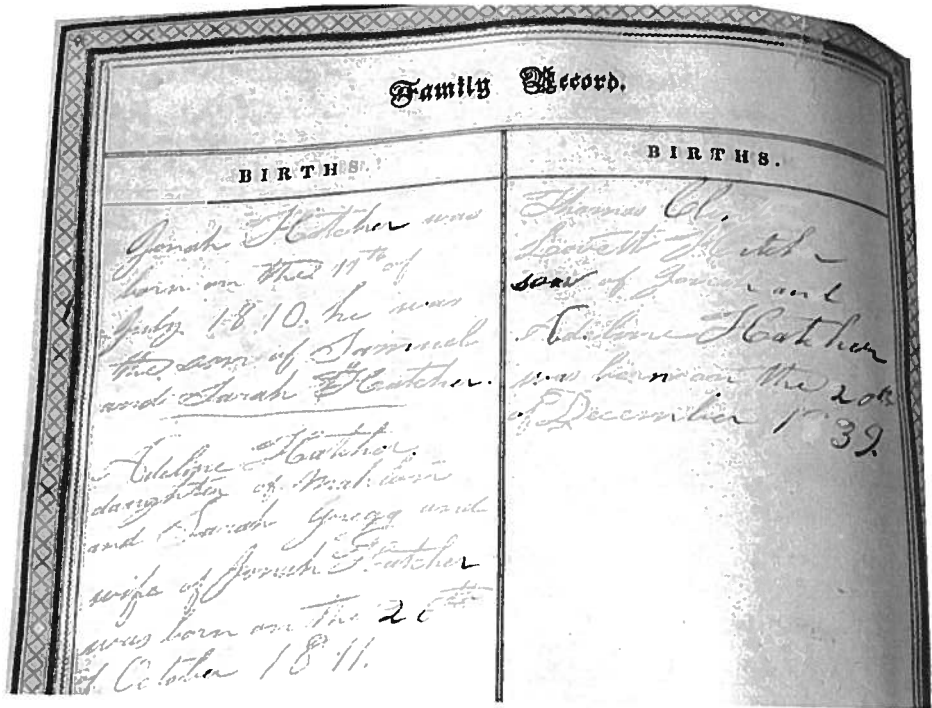 Family Record.
BIRTHS.
Jonah Hatcher was
born on the 11th of
July 1810. he was
the son of Samuel
and Sarah Hatcher.
Adeline Hatcher.
daughter of Mahlon
and Sarah Gregg and
wife of Jonah Hatcher
was born on the
of October 1811.
BIRTHS.
Thomas
Lovett
son of and
Adeline Hatcher
was born on the 20th
of December 39.